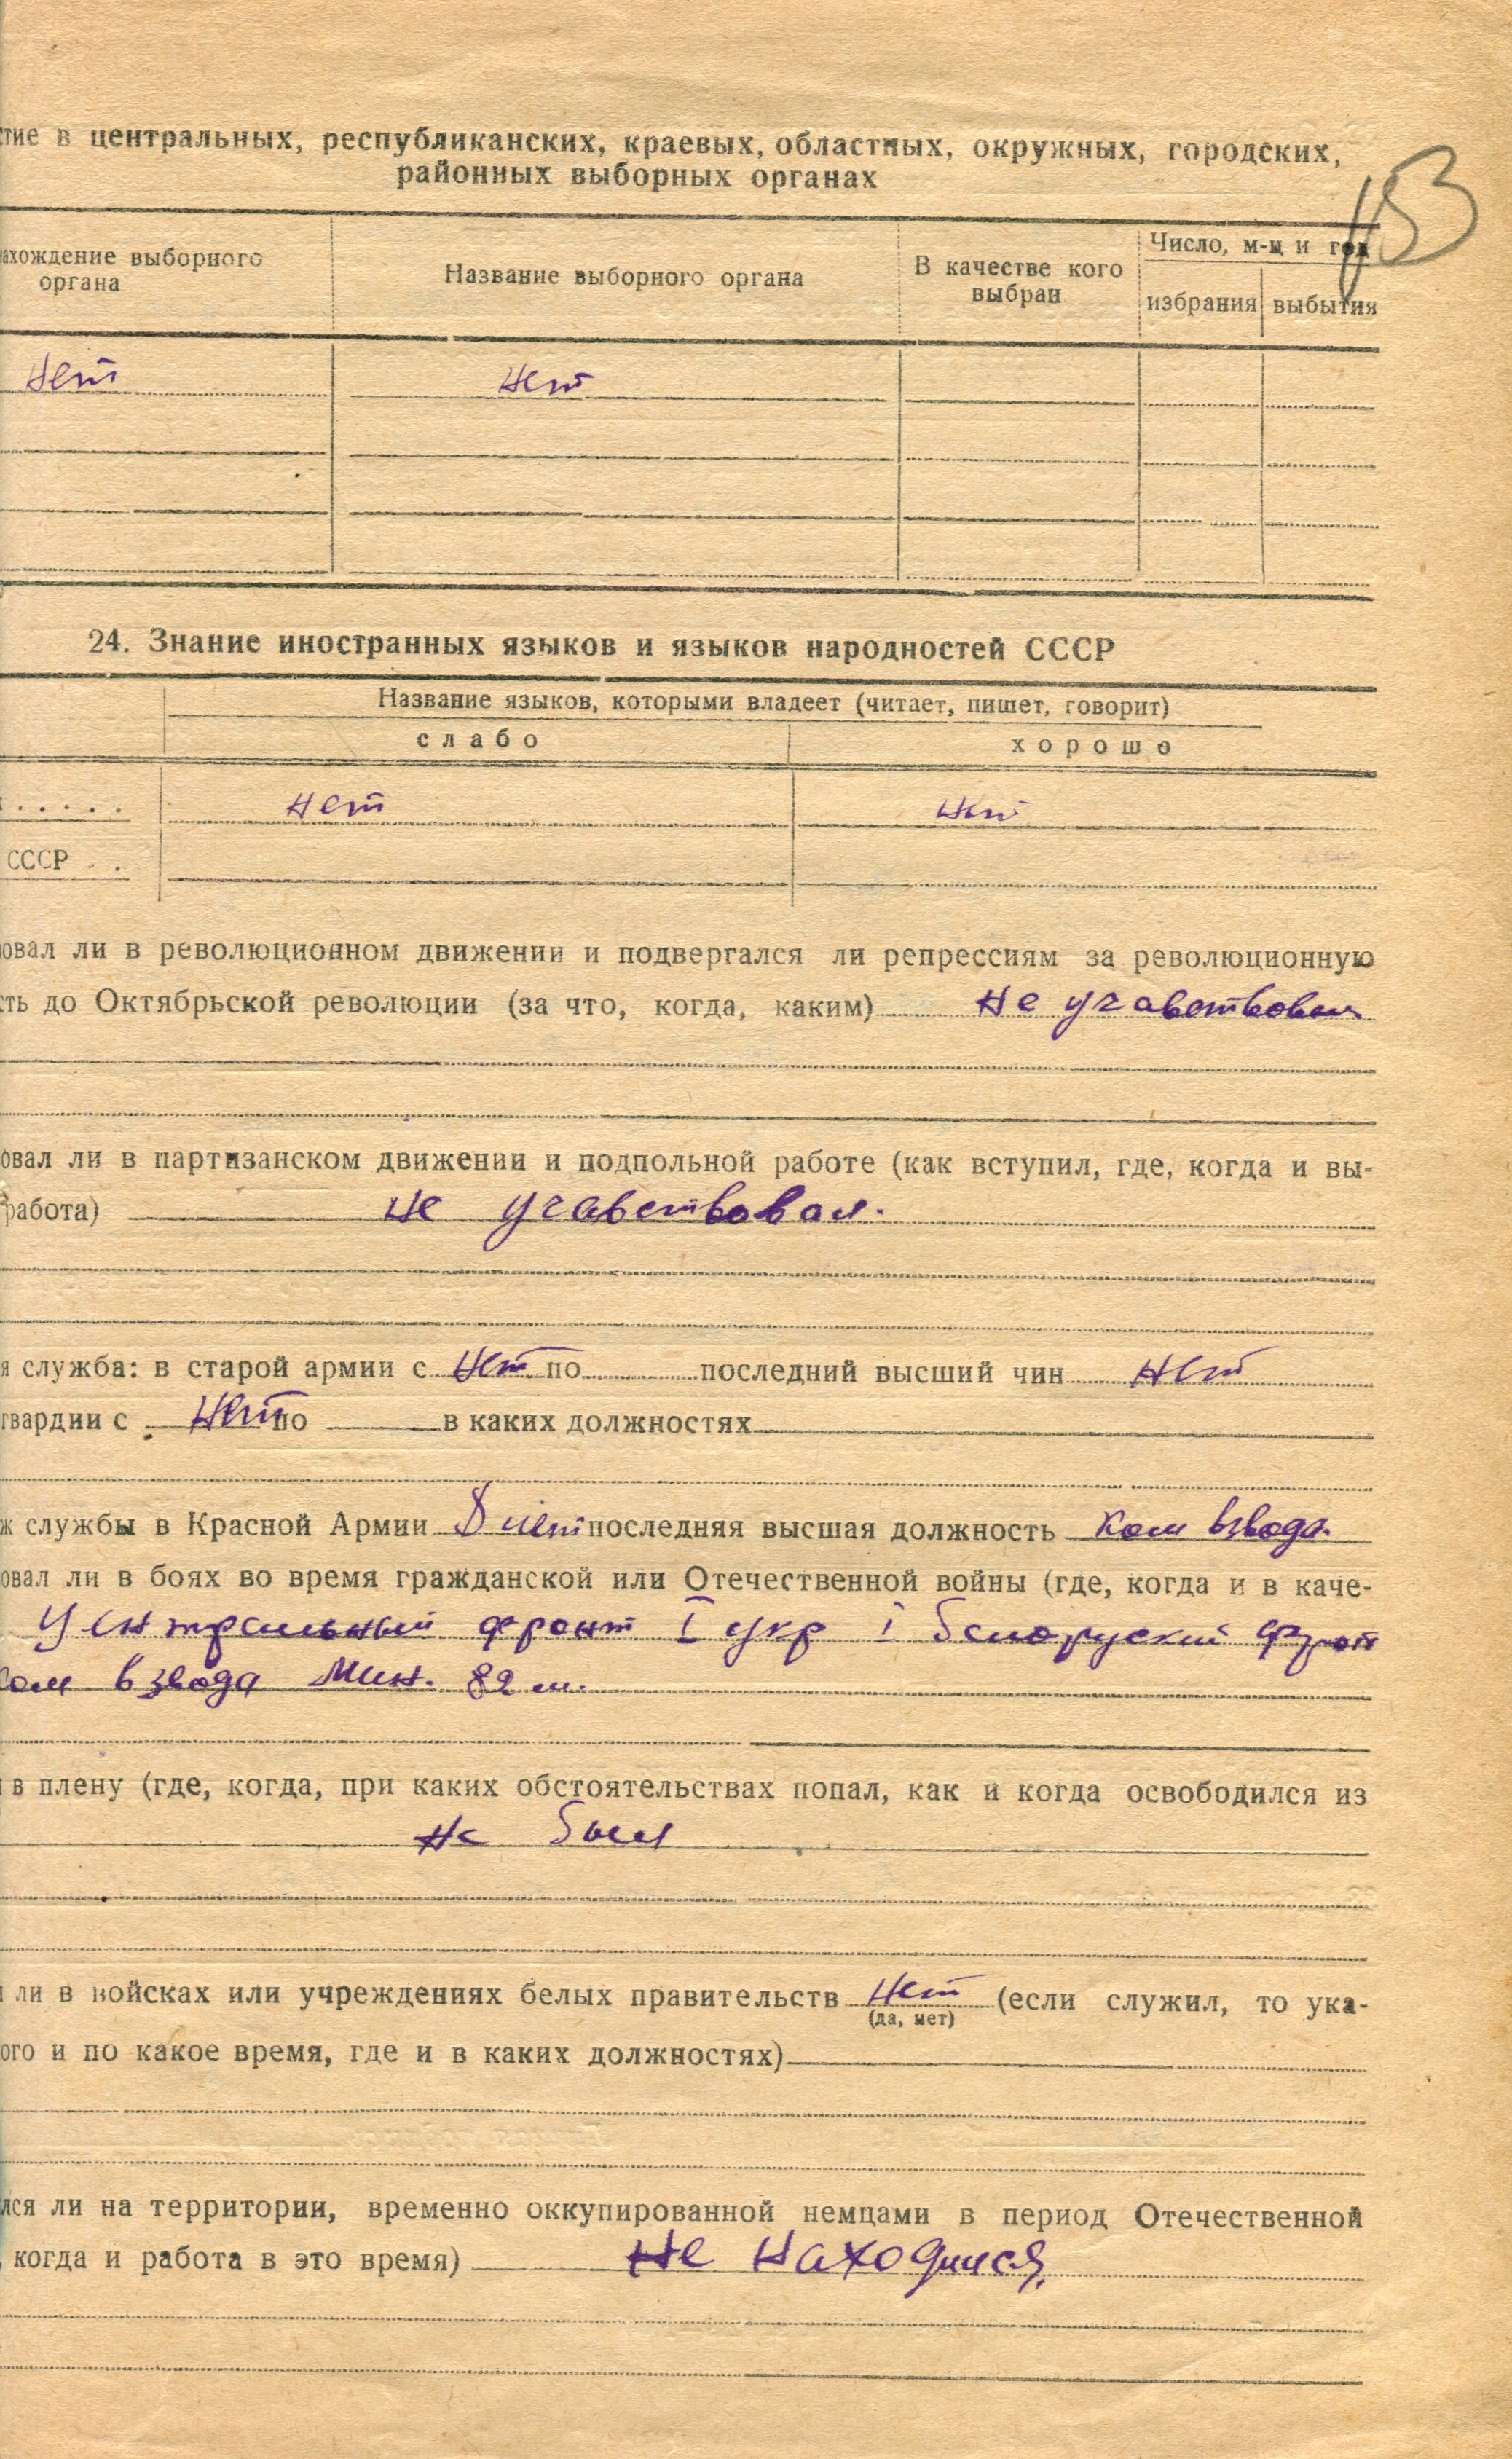 тие в центральных, республиканских, краевых, областных, окружных, городских,
районных выборных органах
153
ахождение выборного органа
Название выборного органа
В качестве кого выбран
Число, м-ц и год
избрания выбытия
нет нет
24. Знание иностранных языков и языков народностей СССР
Название языков, которыми владеет (читает, пишет, говорит)
слабо хорошо
..... нет нет
СССР . .
овал ли в революционном движении и подвергался ли репрессиям за революционную
ть до Октябрьской революции (за что, когда, каким) не учавствовал
овал ли в партизанском движении и подпольной работе (как вступил, где, когда и вы-
работа) не учавствовал.
я служба: в старой армии с нет по последний высший чин нет
гвардии с нет по в каких должностях
ж службы в Красной Армии 8 лет последняя высшая должность ком взвода.
овал ли в боях во время гражданской или Отечественной войны (где, когда и в каче-
Центральный фронт I укр I Белоруский фронт
ком взвода мин. 82 м.
в плену (где, когда, при каких обстоятельствах попал, как и когда освободился из
не был
ли в войсках или учреждениях белых правительств нет (если служил, то ука-
(да, нет)
ого и по какое время, где и в каких должностях)
лся ли на территории, временно оккупированной немцами в период Отечественной
, когда и работа в это время) Не находился.